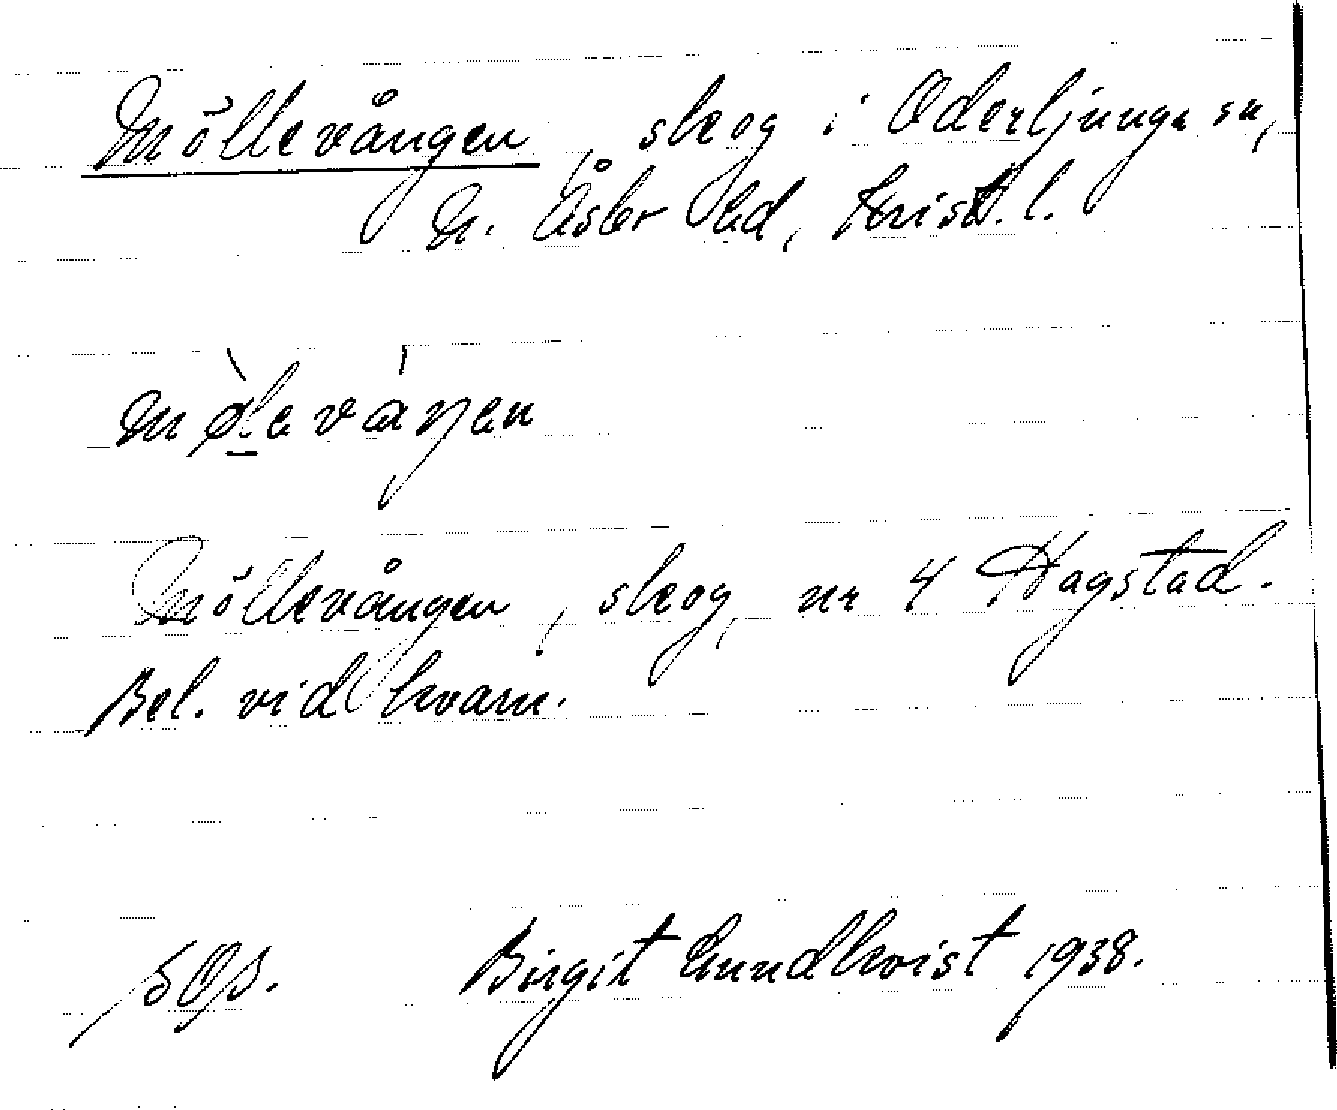 Möllevången, skog i Oderljunga sn,
N. Åsbo hd, Krist. l.
mø̀laváŋen
Möllevången, skog, nr 4 Hagstad.
Bel. vid kvarn.
SOS. Birgit Lundkvist 1938.